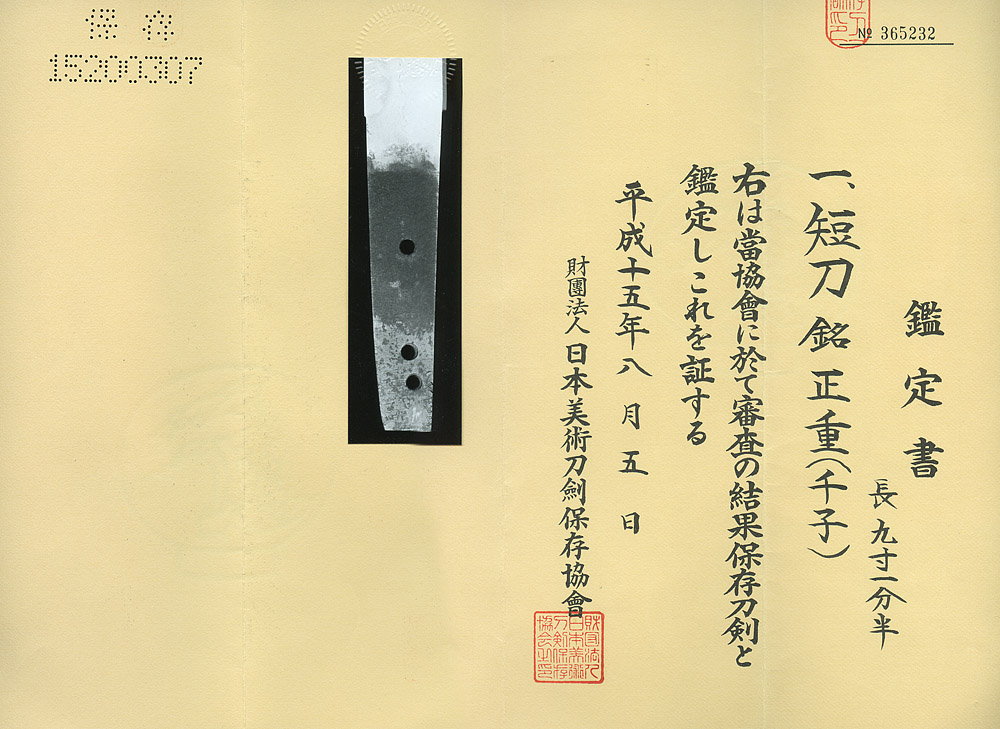 № 365232
鑑定書
一、短刀 銘 正重(千子)
長 九寸一分半
右は當協會に於て審査の結果保存刀剣と
鑑定しこれを証する
平成十五年八月五日
財團法人 日本美術刀劍保存協會
保存
15200307